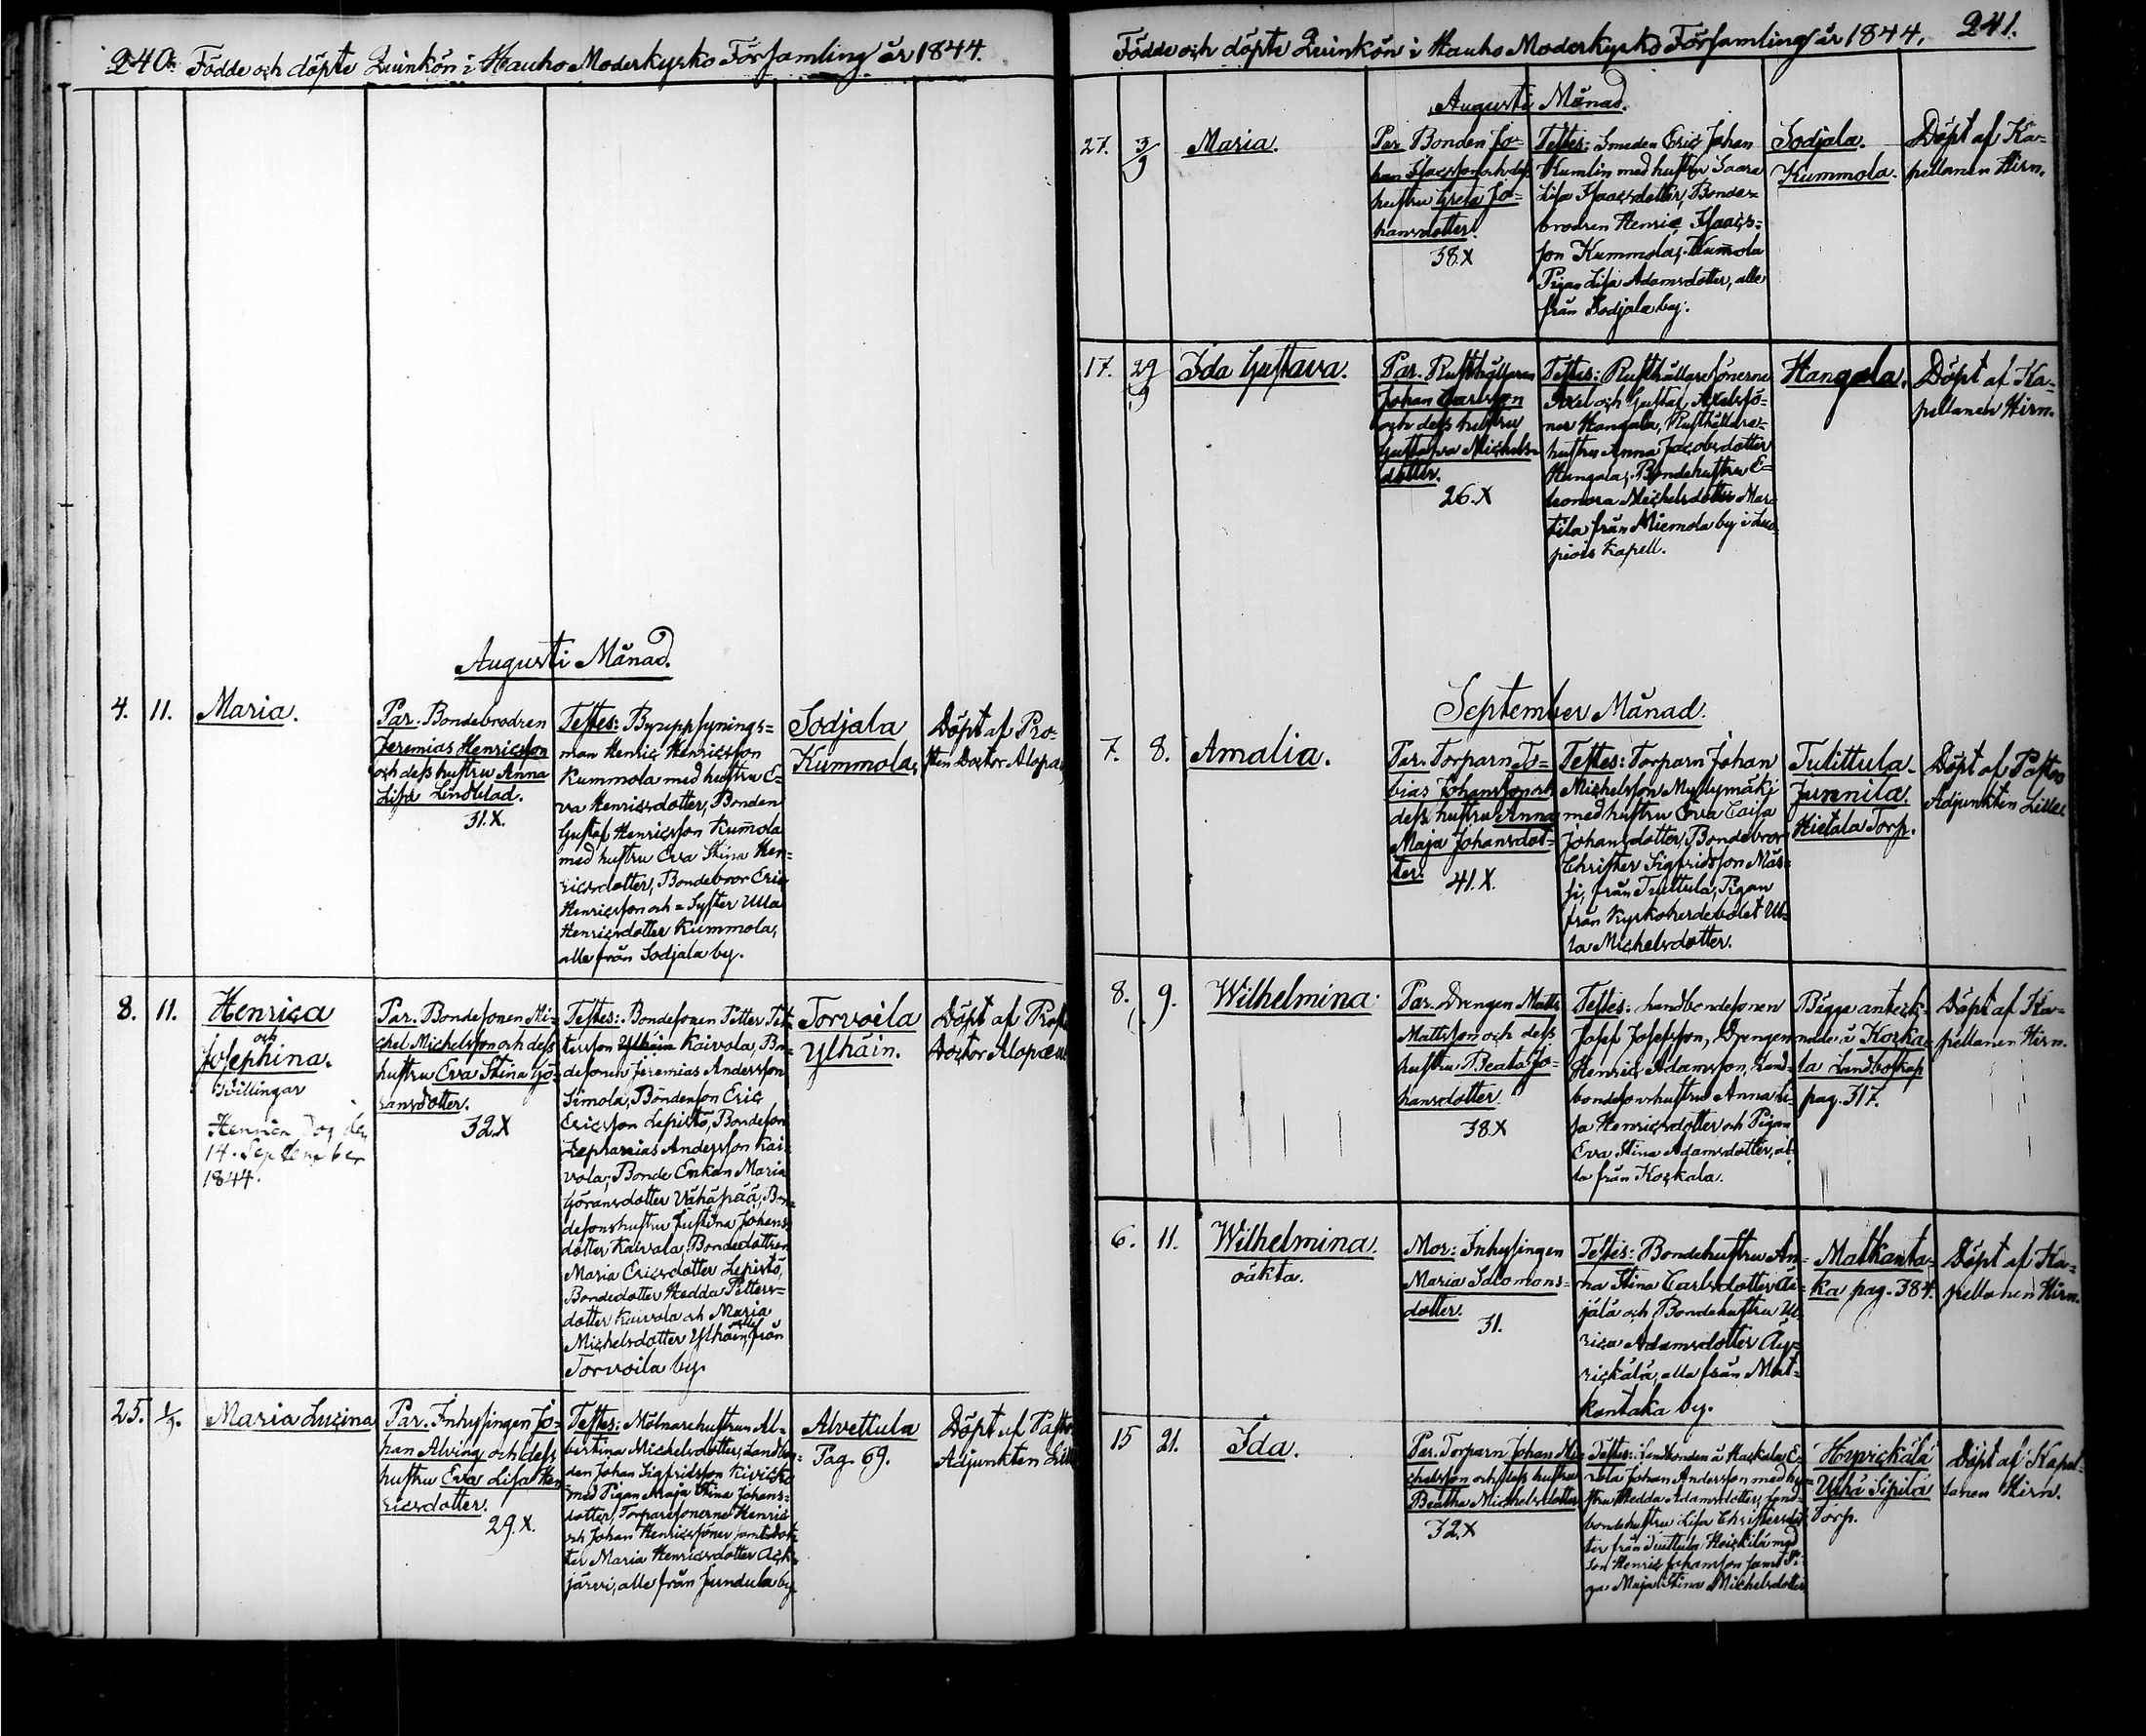 240. Födde och döpte Quinkön i Hauho Moderkyrko Församling år 1844.
Augusti Månad.
4. 11. Maria.
Par. Bondebrodren
Jeremias Henricsson
och dess hustru Anna
Lisa Lindblad.
31.X.
Testes: Byuppsynings=
man Henric Henricsson
Kummola med hustru E=
va Henricsdotter, Bonden
Gustaf Henricsson Kum̄ola
med hustru Eva Stina Hen=
ricsdotter, Bondebror Eric
Henricsson och = Syster Ulla
Henricsdotter Kummola,
alle från Sodjala by.
Sodjala
Kummola,
Döpt af Pro-
sten Doctor
8. 11. Henrica
och
Josephina.
tvillingar
Henrica Dog den
14. September
1844.
Par. Bondesonen Mi=
chel Michelsson och dess
hustru Eva Stina Gö=
ransdotter.
32.X
Testes: Bondesonen Petter Pet=
tersson Ylhäin Kaivola, Bon=
desonen Jeremias Andersson
Simola, Bondeson Eric
Ericsson Lepistö, Bondeson
Zepharias Andersson Kai=
vola, Bonde Enkan Maria
Göransdotter Vähäpää, Bon=
desonshustru Justina Johans
dotter Kaivola, Bondedottren
Maria Ericsdotter Lepistö,
Bondedotter Hedda Petters=
dotter Kaivola och Maria
Michelsdotter Ylhäin, alle från
Torvoila by.
Torvoila
Ylhäin.
Döpt af
Doctor
25. 1/9. Maria Lucina
Par. Inhysingen Jo=
han Alving och dess
hustru Eva Lisa Hen
ricsdotter.
29.X.
Testes: Mölnarehustrun Al=
bertina Michelsdotter, Landbon=
den Johan Sigfridsson Kivickä
med Pigan Maja Stina Johans=
dotter, Torparesönerne Henric
och Johan Henricssöner samt dot=
ter Maria Henricsdotter
järvi, alle från Jundula by
Alvettula
Pag. 69.
Döpt af
Adjunkten
Födde och döpte Quinkön i Hauho Moderkyrko Församling år 1844. 241.
Augusti Månad.
27. 3/9 Maria.
Par. Bonden Jo=
han Isacsson och dess
hustru Greta Jo=
hansdotter.
38.X
Testes: Smeden Eric Johan
Humlin med hustru Saara
Lisa Isaacsdotter, Bonde=
brodren Henric Isaacs=
son Kummola, Kum̄ola
Pigan Lisa Adamsdotter, alle
från Sodjala by.
Sodjala.
Kummola.
Döpt af Ka=
pellanen Hirn.
17. 29/9 Ida Gustava.
Par. Rusthållaren
Johan Carlsson
och dess hustru
Gustafva Michels=
dotter.
26.X
Testes: Rusthållaresönerne
Axel och Gustaf Axelssö=
ner Hangala, Rusthållare=
hustru Anna Jacobsdotter
Hangala, Bondehustru E=
leonora Michelsdotter Mar=
tila från Miemola by i Luo=
piois Kapell.
Hangala.
Döpt af Ka=
pellanen Hirn.
September Månad.
7. 8. Amalia.
Par. Torparn To=
bias Johansson och
dess hustru Anna
Maja Johansdot=
ter.
41.X.
Testes: Torparn Johan
Michelsson Myllymäki
med hustru Eva Caisa
Johansdotter, Bondebror
Christer Sigfridsson Mäs=
si, från Tuittula, Pigan
från Kyrkoherdebolet Ul=
la Michelsdotter.
Tulittula.
Junnila.
Hietala Torp.
Döpt af Pastors
Adjunkten
8. 9. Wilhelmina.
Par. Drengen Matts
Mattsson och dess
hustru Beata Jo=
hansdotter.
38.X
Testes: Landbondesonen
Josef Josefsson, Drengen
Henric Adamsson, Land=
bondesonshustru Anna Li=
sa Henricsdotter och Pigan
Eva Stina Adamsdotter, al=
la från Kockala.
Bägge anteck=
nade å Kocka=
la Landboskap
pag. 317.
Döpt af Ka=
pellanen Hirn.
6. 11. Wilhelmina.
oäkta.
Mor: Inhysingen
Maria Salomons=
dotter.
31.
Testes: Bondehustru An=
na Stina Carlsdotter Äi=
jälä och Bondehustru Ul=
rica Adamsdotter Äy=
rickälä, alla från Mat=
kantaka by.
Matkanta=
ka pag. 384.
Döpt af Ka=
pellanen Hirn.
15 21. Ida.
Par. Torparn Johan Mi=
chelsson och dess hustru
Beatha Michelsdotter
32.X
Testes: Landbonden å Hackala E=
rola Johan Andersson med hu=
stru Hedda Adamsdotter, Land=
bondehustru Lisa Christersdot=
ter från Tuittula Heickilä med
Son Henric Johansson samt Pi=
ga Maja Stina Michelsdotter
Hyrickälä
Ylhä Sipilä
Torp.
Döpt af Kapel=
lanen Hirn.